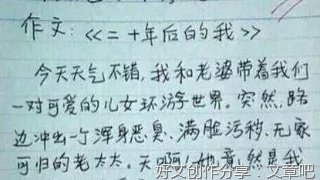 作文:《二十年后的我》
今天天气不错,我和老婆带着我们
一对可爱的儿女环游世界。突然,路
边冲出一个浑身恶臭、满脸污秽、无家
可归的老太太。天啊!她竟然是我
好文创作分享:文章吧